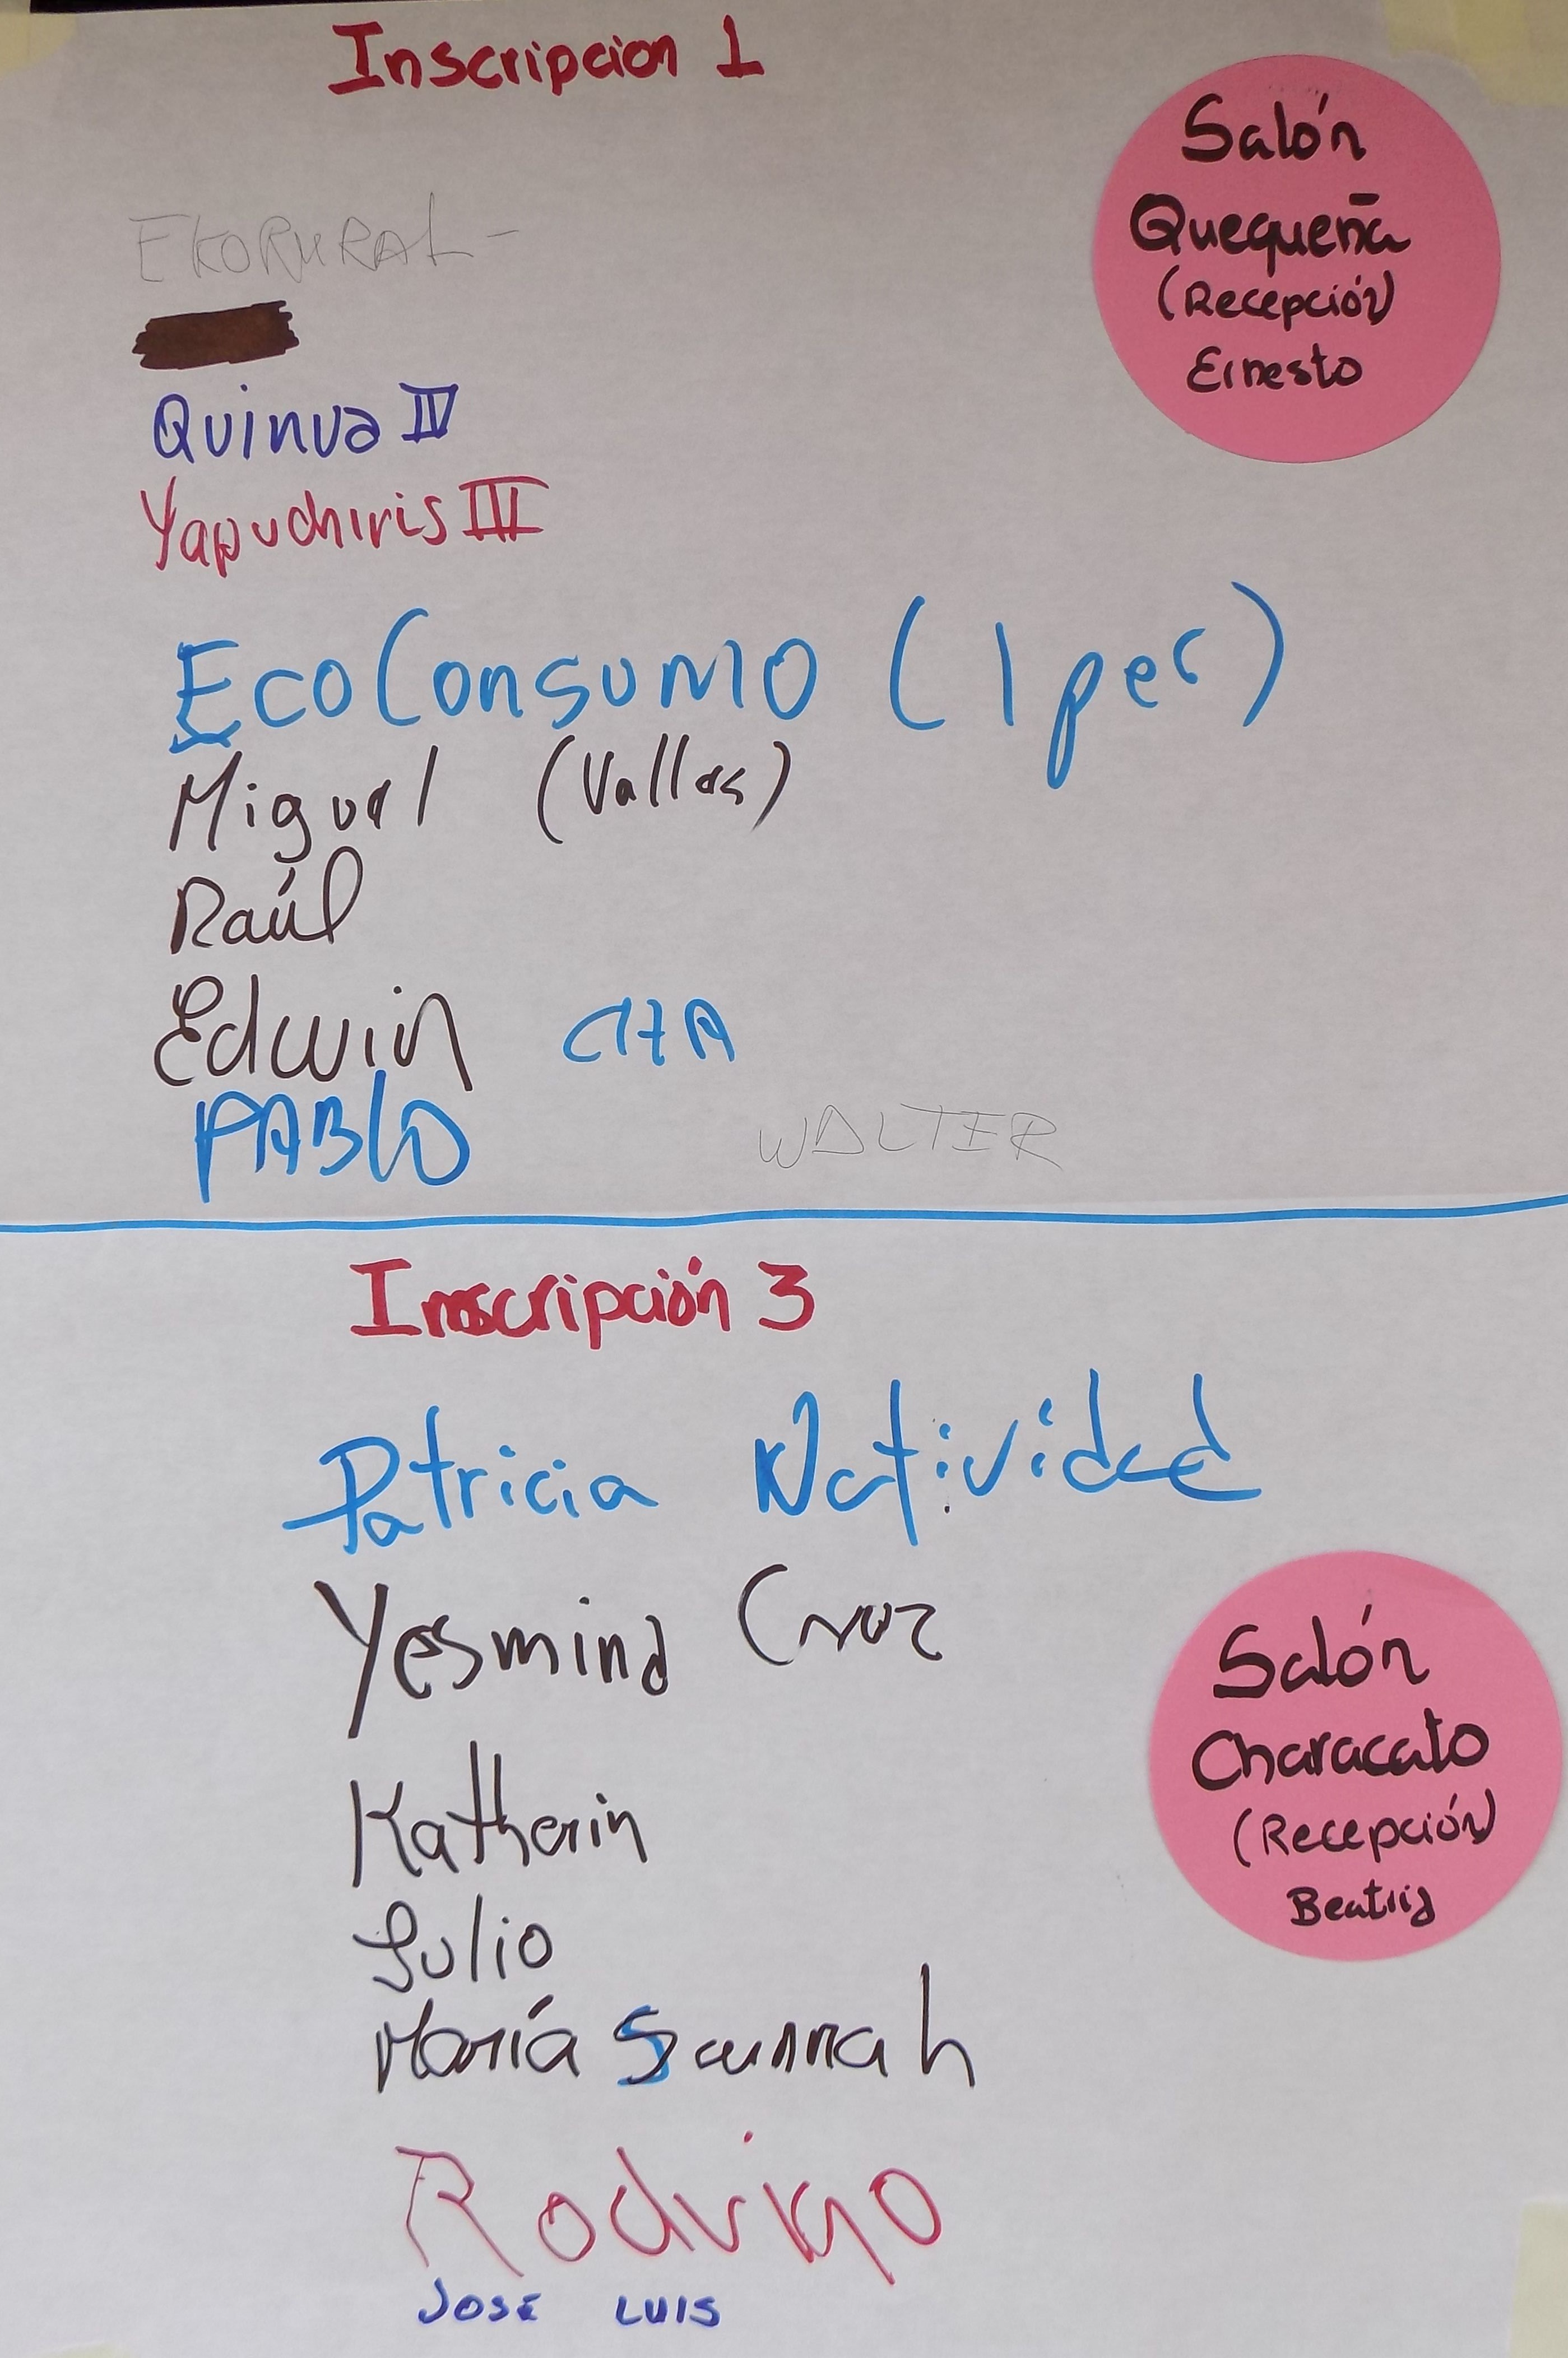 Inscripcion 1
Salón
Quequeña
(Recepción)
Ernesto
EKORURAL -
Quinua IV
Yapuchiris III
EcoConsumo (1 per)
Miguel (Valles)
Raúl
Edwin
PABLO
WALTER
Inscripción 3
Patricia Natividad
Yesmina Cruz
Katherin
Julio
María Scunnah
Rodrigo
JOSE LUIS
Salón
Characato
(Recepción)
Beatriz